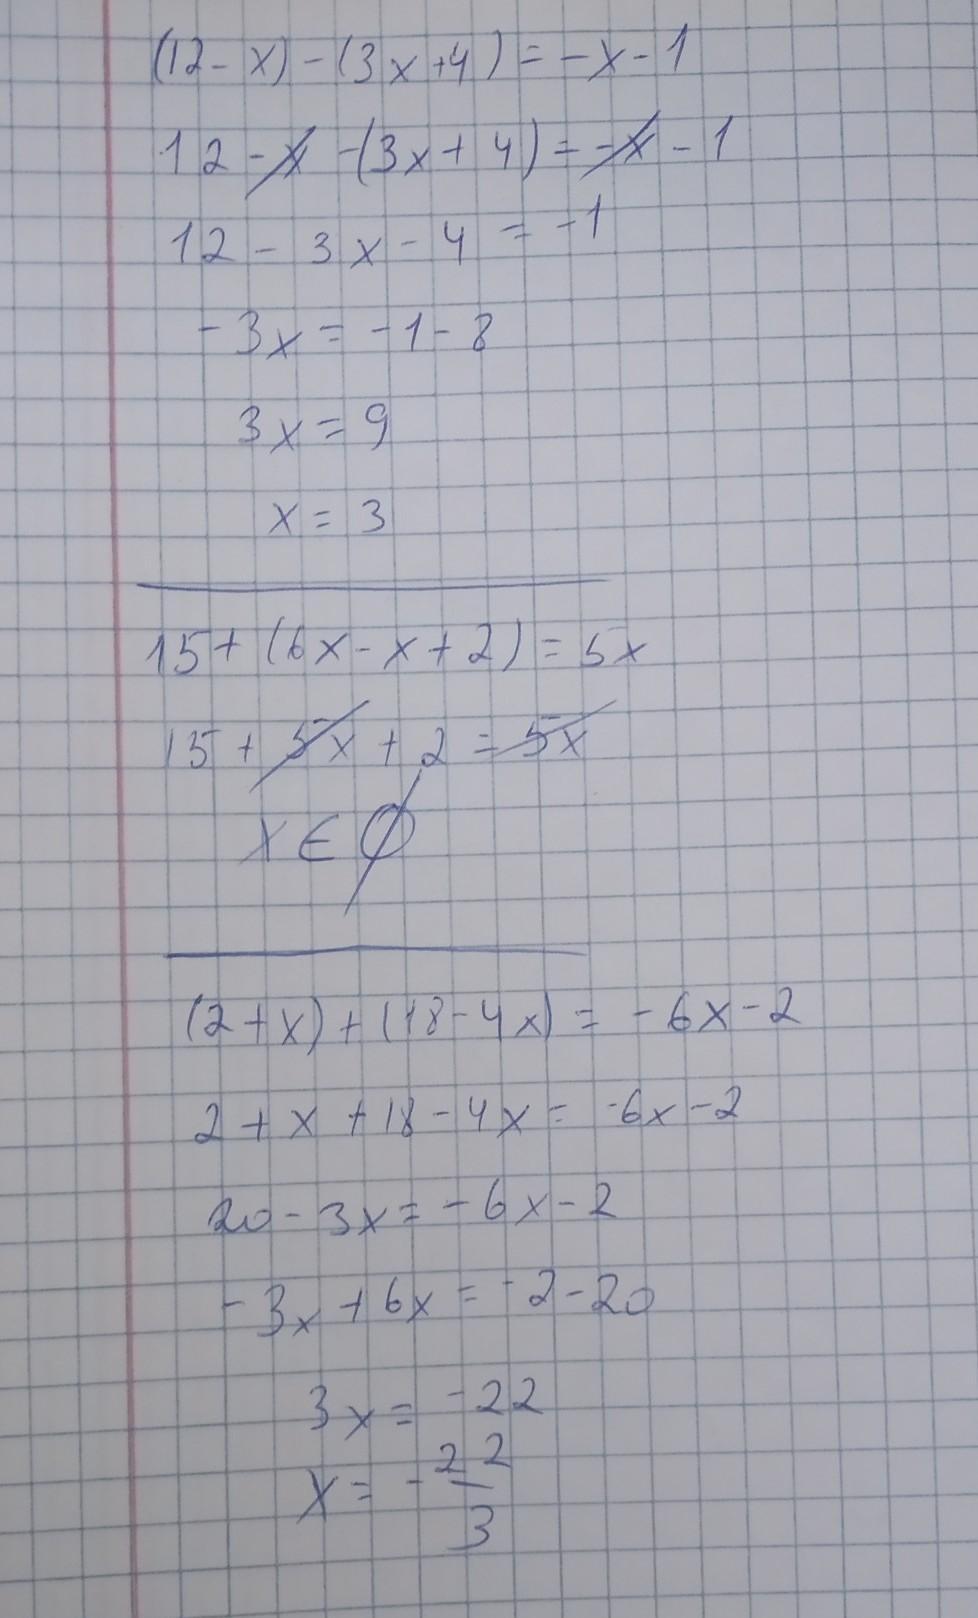 (12-x)-(3x+4)=-x-1
12-x-(3x+4)=-x-1
12-3x-4=-1
-3x=-1-8
3x=9
x=3
15+(6x-x+2)=5x
15+5x+2=5x
x∈∅
(2+x)+(18-4x)=-6x-2
2+x+18-4x=-6x-2
20-3x=-6x-2
-3x+6x=-2-20
3x=-22
x=-22/3